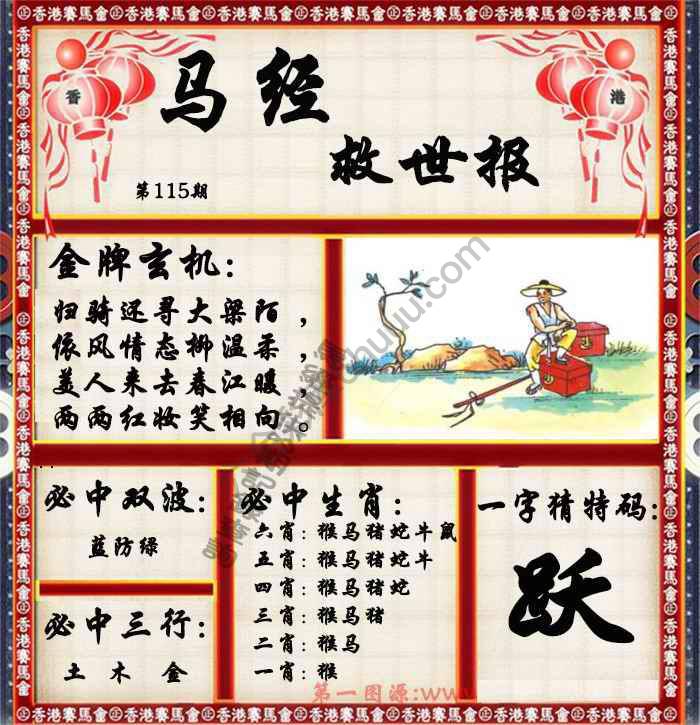 香港賽馬會
香 港
马经
救世报
第115期
金牌玄机:
归骑还寻大梁陌，
依风情态柳温柔，
美人来去春江暖，
两两红妆笑相向。
必中双波:
蓝防绿
必中三行:
土 木 金
必中生肖:
六肖: 猴马猪蛇牛鼠
五肖: 猴马猪蛇牛
四肖: 猴马猪蛇
三肖: 猴马猪
二肖: 猴马
一肖: 猴
一字猜特码:
跃
第一图源:www